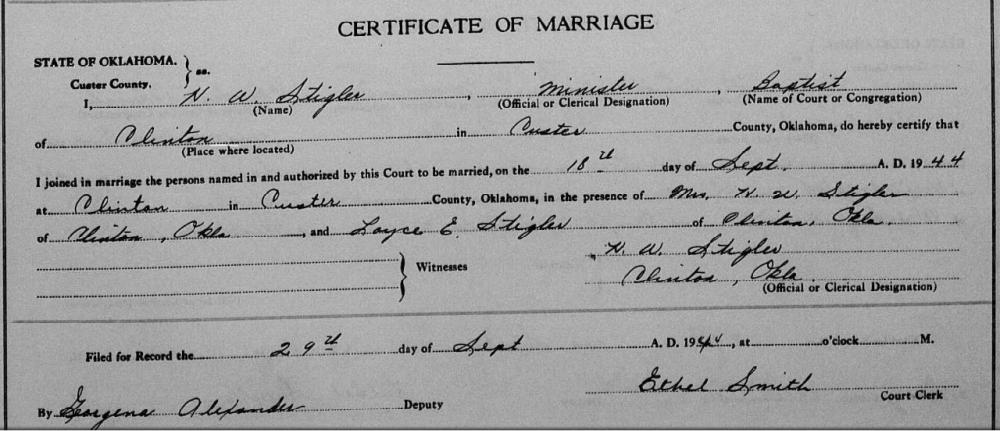 CERTIFICATE OF MARRIAGE
STATE OF OKLAHOMA. } ss.
Custer County.
I, N. W. Stigler, Minister, Baptist
(Name) (Official or Clerical Designation) (Name of Court or Congregation)
of Clinton in Custer County, Oklahoma, do hereby certify that
(Place where located)
I joined in marriage the persons named in and authorized by this Court to be married, on the 18th day of Sept. A. D. 1944
at Clinton in Custer County, Oklahoma, in the presence of Mrs. N. W. Stigler
of Clinton, Okla, and Loyce E. Stigler of Clinton, Okla.
N. W. Stigler
} Witnesses
Clinton, Okla
(Official or Clerical Designation)
Filed for Record the 29th day of Sept A. D. 1944, at o'clock M.
Ethel Smith
Court Clerk
By Georgena Alexander Deputy